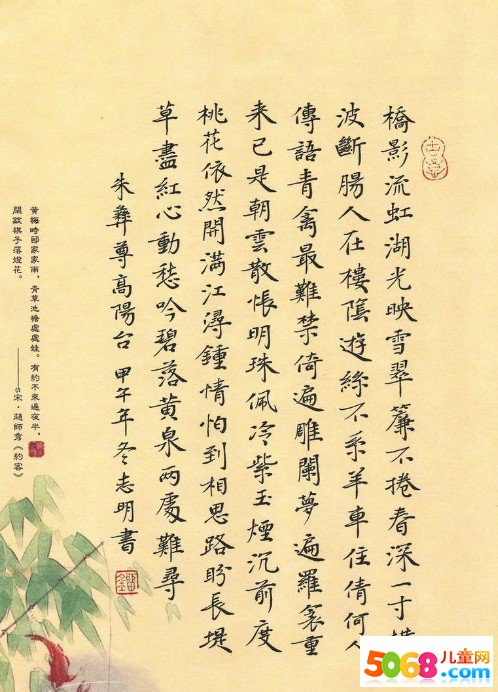 橋影流虹湖光映雪翠簾不捲春深一寸
波斷腸人在樓陰遊絲不系羊車住倩何人
傳語青禽最難禁倚遍雕闌夢遍羅衾重
来已是朝雲散悵明珠佩冷紫玉煙沉前度
桃花依然開滿江潯鍾情怕到相思路盼長堤
草盡紅心動愁吟碧落黃泉两處難尋
朱彝尊高陽台 甲午年冬志明書
黃梅時節家家雨，青草池塘處處蛙。有約不來過夜半，
閑敲棋子落燈花。
——宋·趙師秀《約客》
5068儿童网
www.5068.com